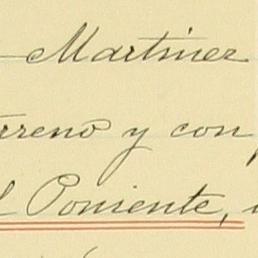 Martinez
terreno y con
Poniente,